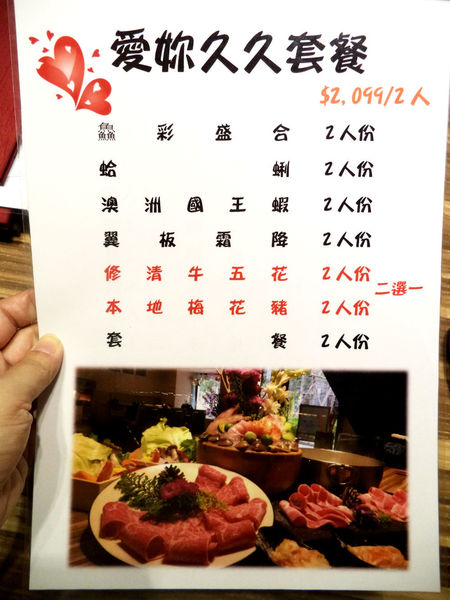 愛妳久久套餐
$2,099/2人
鱻彩盛合 2人份
蛤蜊 2人份
澳洲國王蝦 2人份
翼板霜降 2人份
修清牛五花 2人份
二選一
本地梅花豬 2人份
套餐 2人份